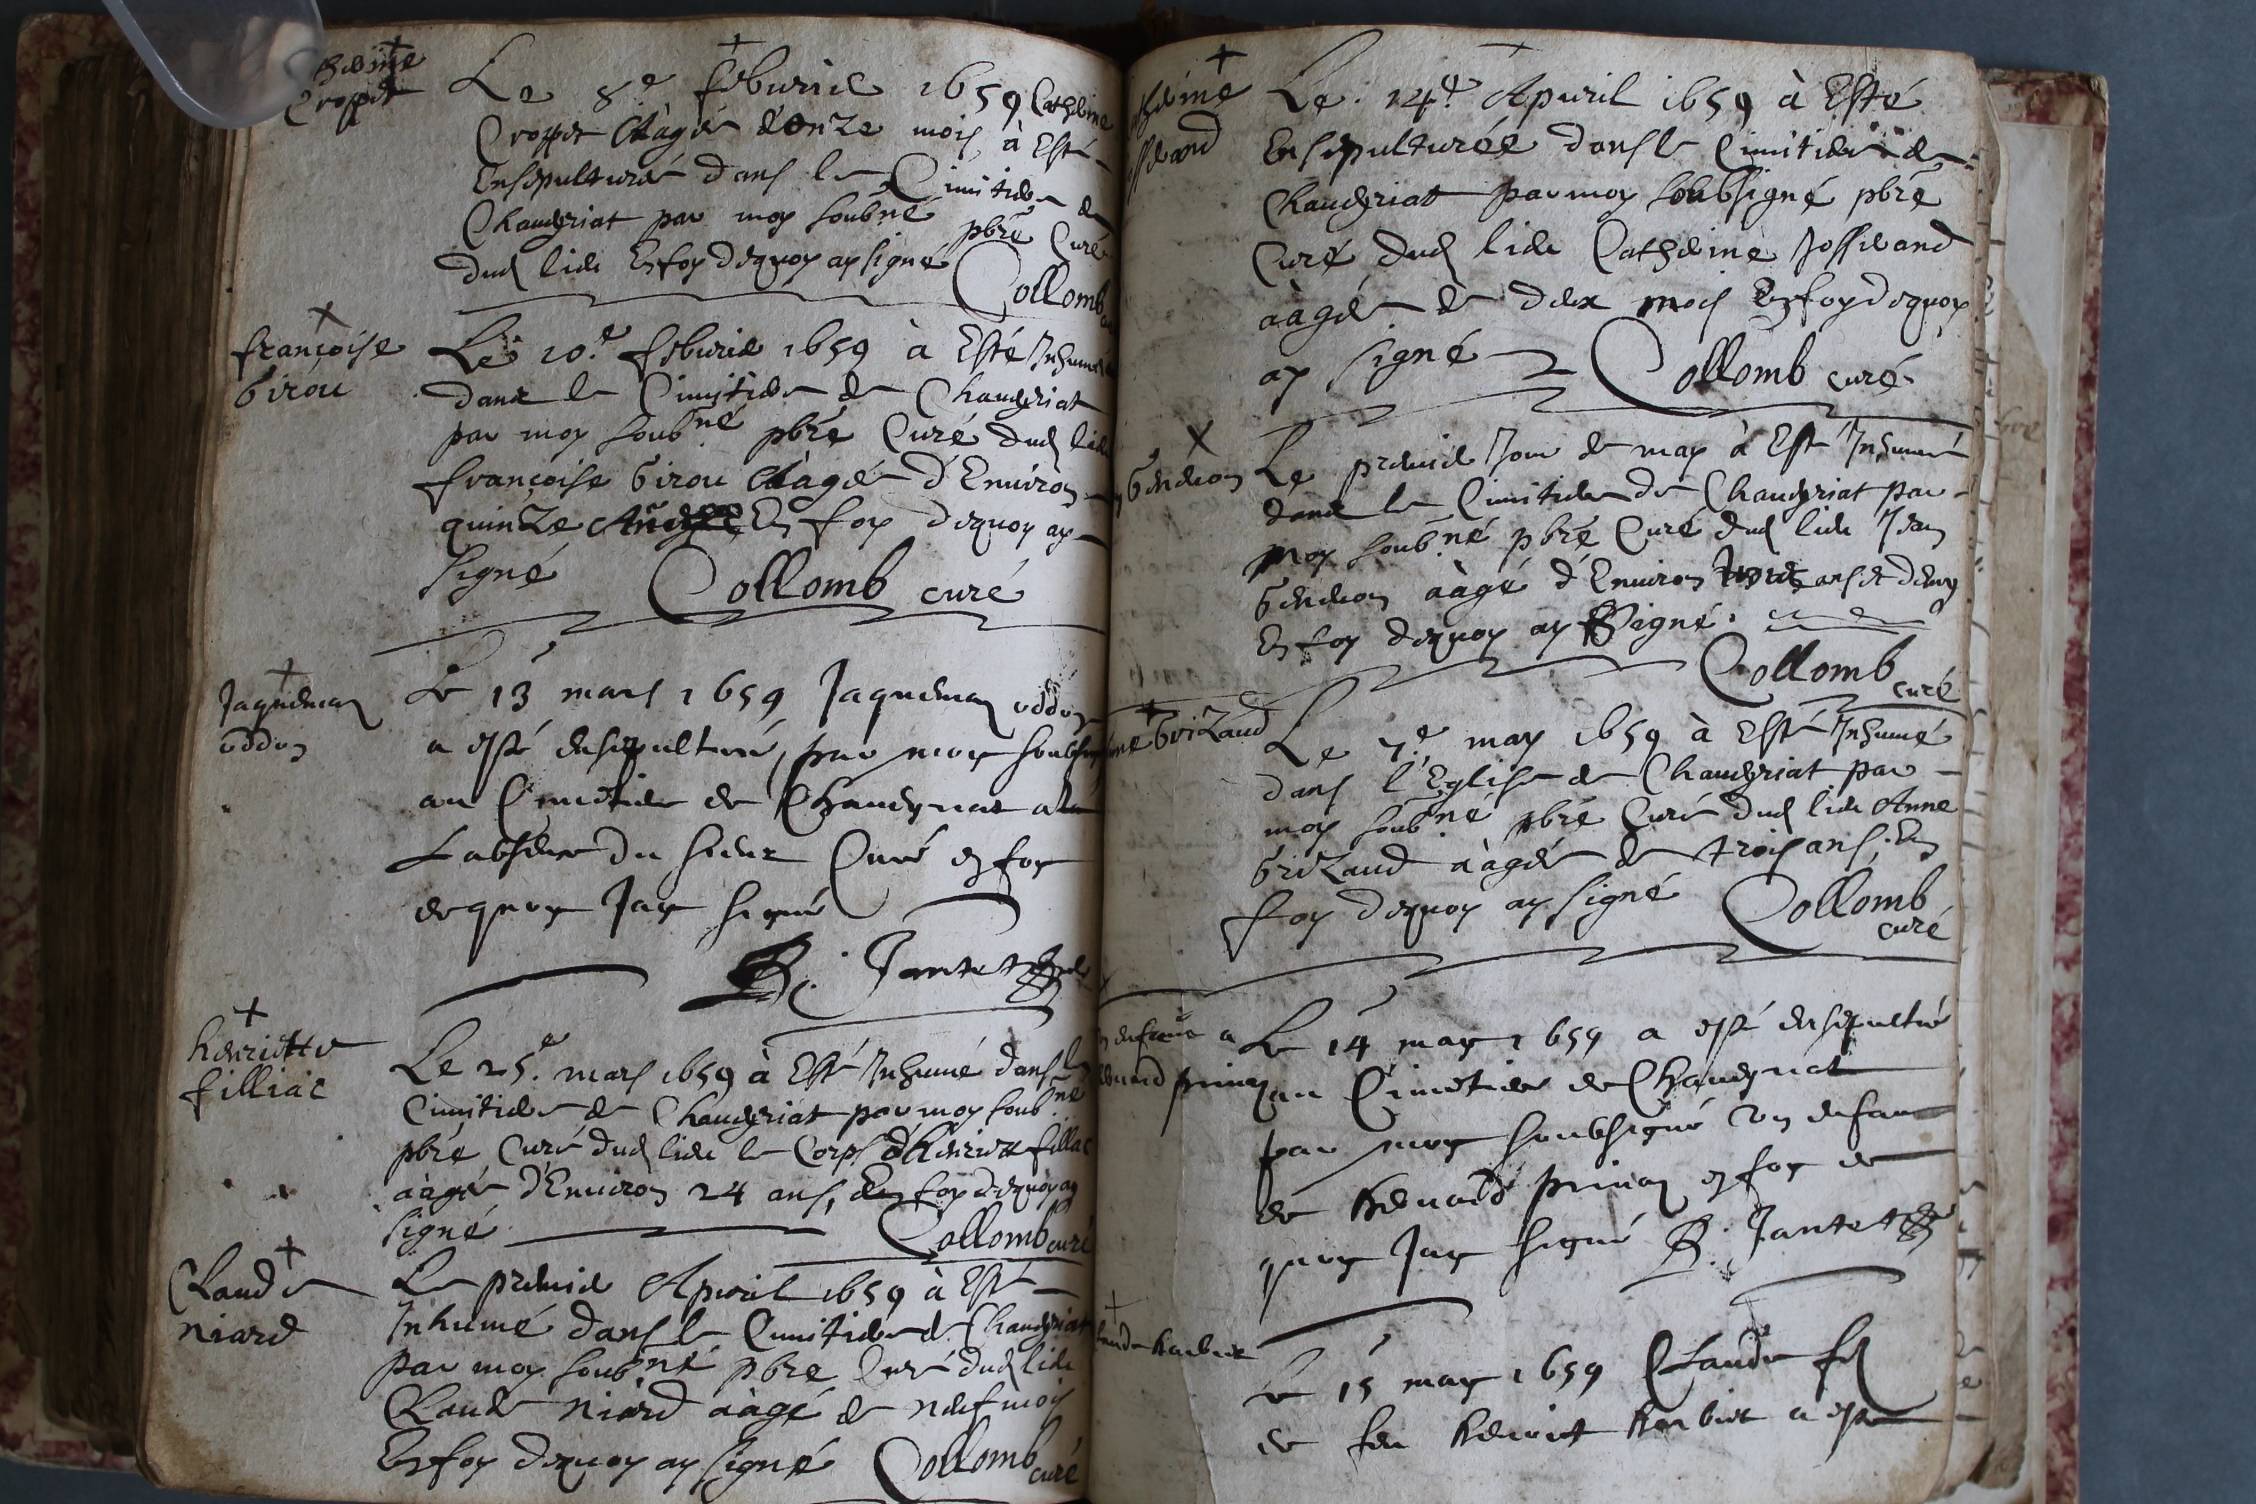 Croppet
Le 8e feburier 1659 Catherine
Croppet Aâgée d'onze mois à Esté
Ensepulturée dans le Cimitiere de
Chaveyriat par moy soubné pbre Curé
dud lieu En foy dequoy ay signé
Collomb
françoise
Girou
Le 10e feburier 1659 à Esté Inhumée
dans le Cimitiere de Chaveyriat
par moy soubné pbre Curé dud lieu
françoise Girou Aâgée d'Environ
quinze En foy dequoy ay
signé Collomb curé
Jaquema
oddon
Le 13 mars 1659 Jaquema oddon
a esté ensepulturé par moy soubsigné
au Cimetiere de Chaveyriat
Labsence du sieur Curé en foy
de quoy Jay signé
Jantet
henriette
filliac
Le 25e mars 1659 à Esté Inhumé dans le
Cimitiere de Chaveyriat par moy soubné
pbre Curé dud lieu le Corps d'henriette filliac
aâgée d'Environ 24 ans, En foy dequoy ay
signé Collomb curé
Claude
niard
Le premier Apvril 1659 à Esté
Inhumé dans le Cimitiere de Chaveyriat
par moy soubné pbre Curé dud lieu
Claude niard aâgé de neuf mois
En foy dequoy ay signé Collomb curé
Le 14e Apvril 1659 à Esté
Ensepulturée dans le Cimitiere de
Chaveyriat par moy soubsigné pbre
Curé dud lieu Catherine Josserand
aâgée de deux mois En foy dequoy
ay signé Collomb curé
Gendron
Le premier Jour de may à Esté Inhumé
dans le Cimitiere de Chaveyriat par
moy soubné pbre Curé dud lieu Jean
Gendron aâgé d'Environ ans et demy
En foy dequoy ay signé.
Collomb curé
Grizaud
Le 7e may 1659 à Esté Inhumé
dans l'Eglise de Chaveyriat par
moy soubné pbre Curé dud lieu Anne
Grizaud aâgée de trois ans. En
foy dequoy ay signé Collomb
curé
enfant a
Le 14 may 1659 a esté ensepulturé
au Cimetiere de Chaveyriat
par moy soubsigné Un enfant
de en foy de
quoy Jay signé Jantet
Le 15 may 1659 Claude
de feu a esté